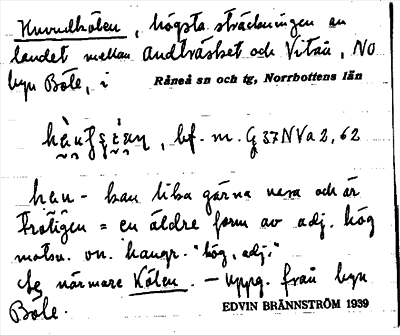 Huvudkölen, högsta sträckningen av
landet mellan Andträsket och Vitån, NO
byn Böle, i Råneå sn och tg, Norrbottens län
bf. m. G 37 NV a 2, 62
kan lika gärna vara och är
troligen = en äldre form av adj. hög
motsv. vn. haugr. "hög, adj."
närmare Kölen. — Uppg. från byn
Böle. EDVIN BRÄNNSTRÖM 1939